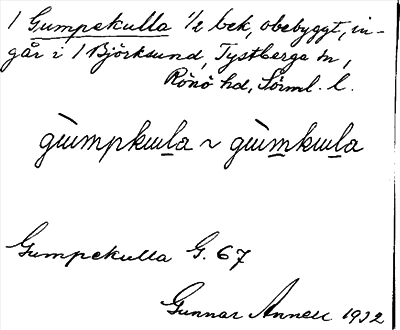 1 Gumpekulla 1/2 bek, obebyggt, in-
går i 1 Björksund, Tystberga sn,
Rönö hd, Sörml. l.
gùmpkuла ~ gùmkula
Gumpekulla G. 67
Gunnar Annell 1932